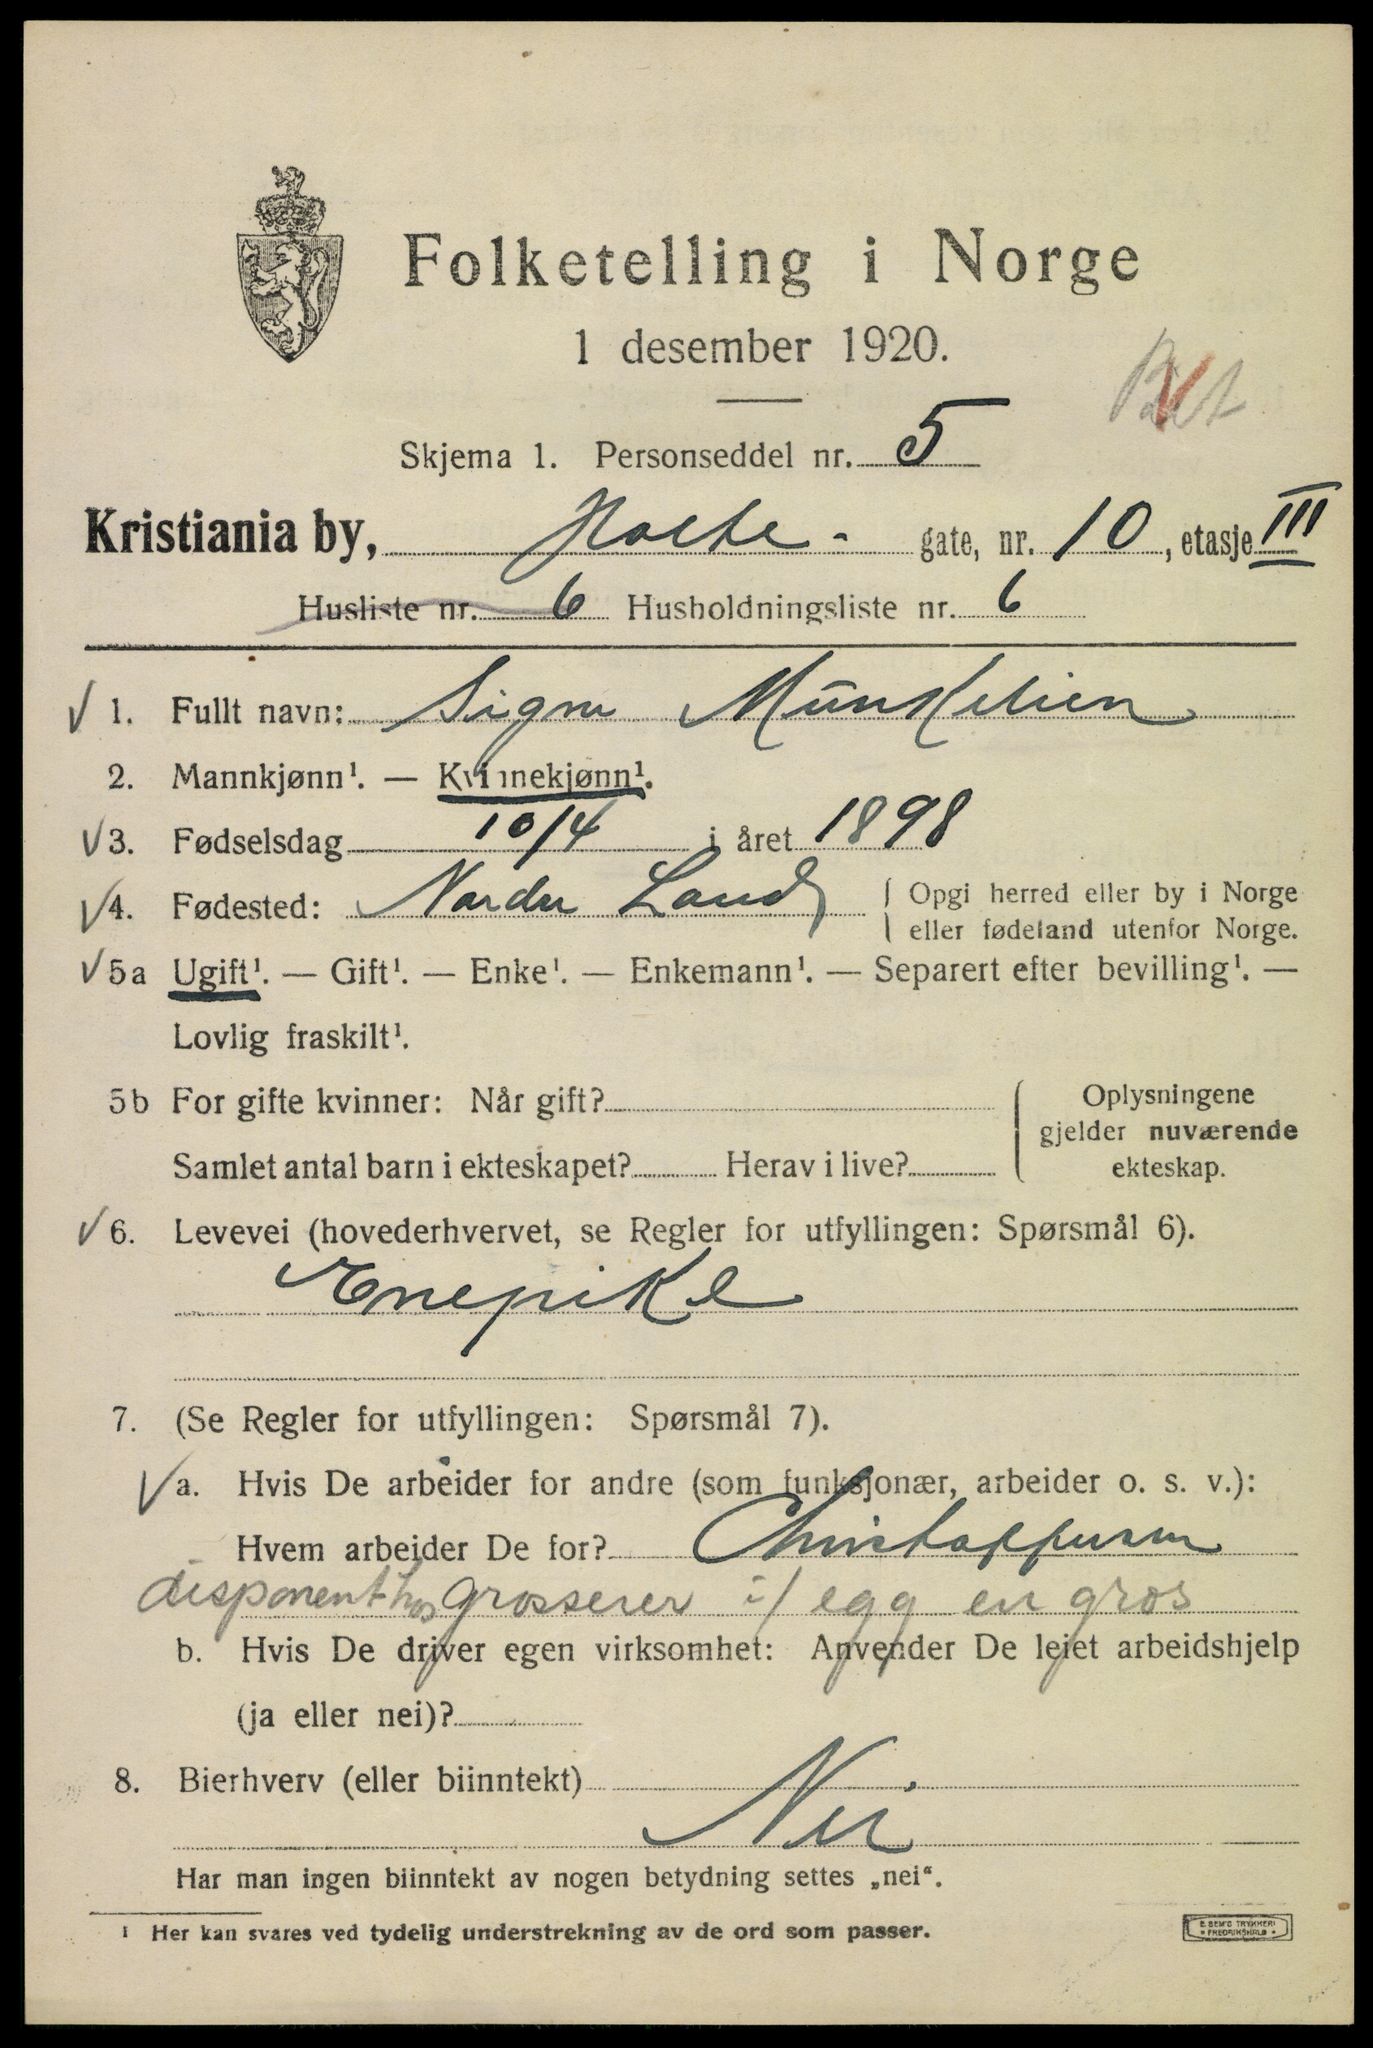 Folketelling i Norge
1 desember 1920.
Skjema 1. Personseddel nr. 5
Kristiania by, Holte- gate, nr. 10, etasje III
Husliste nr. 6 Husholdningsliste nr. 6
√ 1. Fullt navn: Signe Münkelien
2. Mannkjønn¹. — Kvinnekjønn¹.
√ 3. Fødselsdag 10/4 i året 1898
√ 4. Fødested: Nordre Land { Opgi herred eller by i Norge
eller fødeland utenfor Norge.
√ 5a Ugift¹. — Gift¹. — Enke¹. — Enkemann¹. — Separert efter bevilling¹. —
Lovlig fraskilt¹.
5b For gifte kvinner: Når gift? { Oplysningene
gjelder nuværende
Samlet antal barn i ekteskapet? Herav i live? ekteskap.
√ 6. Levevei (hovederhvervet, se Regler for utfyllingen: Spørsmål 6).
Enepike
7. (Se Regler for utfyllingen: Spørsmål 7).
√ a. Hvis De arbeider for andre (som funksjonær, arbeider o. s. v.):
Hvem arbeider De for? Christoffersen
disponent hos grosserer i/ egg en gros
b. Hvis De driver egen virksomhet: Anvender De leiet arbeidshjelp
(ja eller nei)?
8. Bierhverv (eller biinntekt)
Nei
Har man ingen biinntekt av nogen betydning settes „nei“.
¹ Her kan svares ved tydelig understrekning av de ord som passer.
E. SEM'S TRYKKERI
FREDRIKSHALD